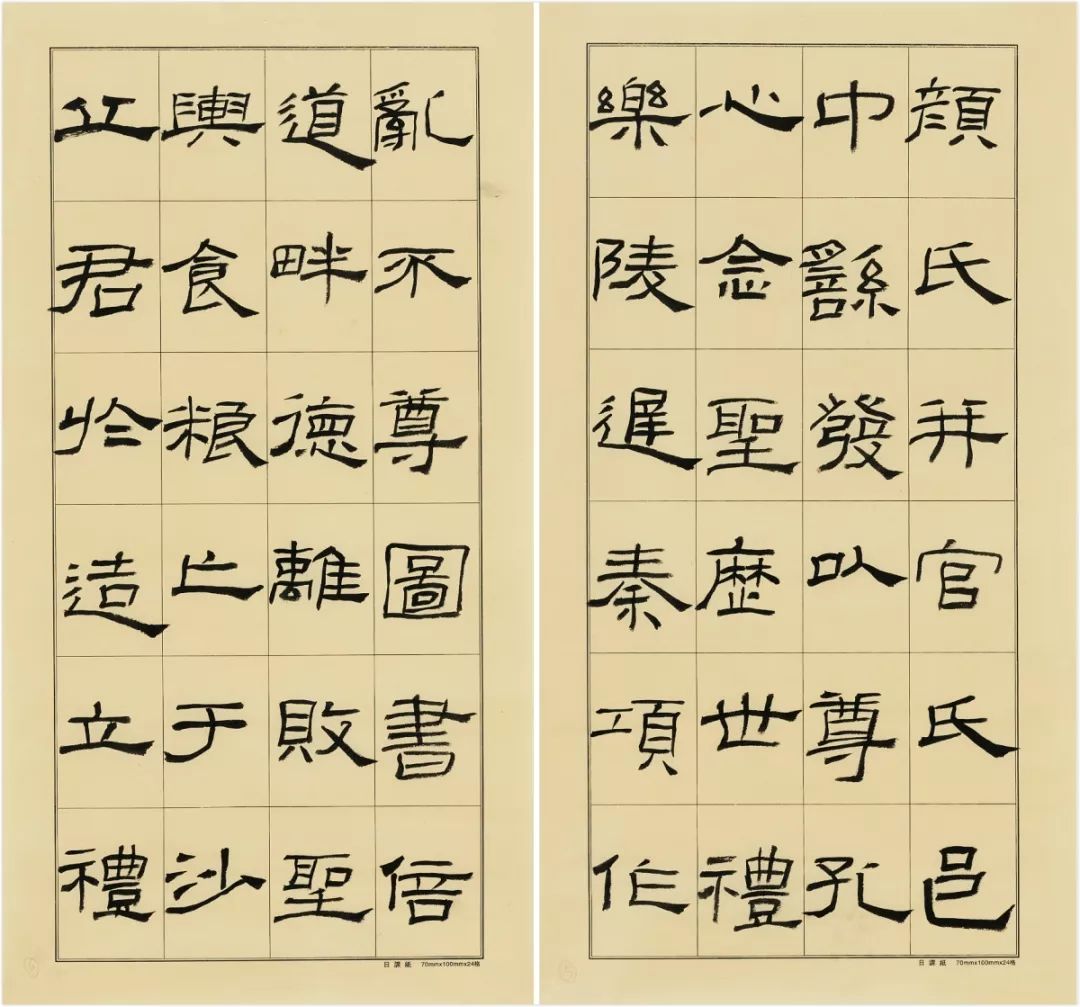 顔氏并官氏邑
中繇發以尊孔
心念聖歷世禮
樂陵遲秦項作
亂不尊圖書倍
道畔德離敗聖
輿食粮亡于沙
丘君於造立禮
日課紙 70mmx100mmx24格
日課紙 70mmx100mmx24格